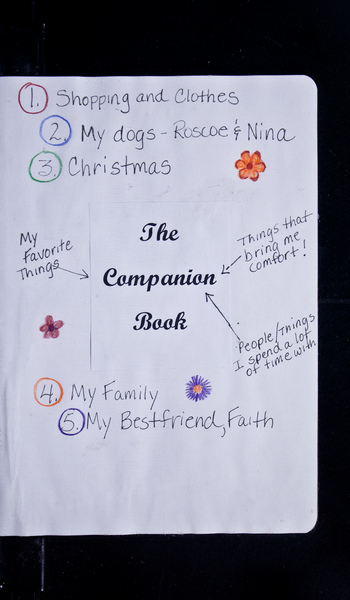 1. Shopping and Clothes
2. My dogs - Roscoe & Nina
3. Christmas
My
favorite
Things
The
Companion
Book
Things that
bring me
comfort!
People/Things
I spend a lot
of time with
4. My Family
5. My Bestfriend, Faith